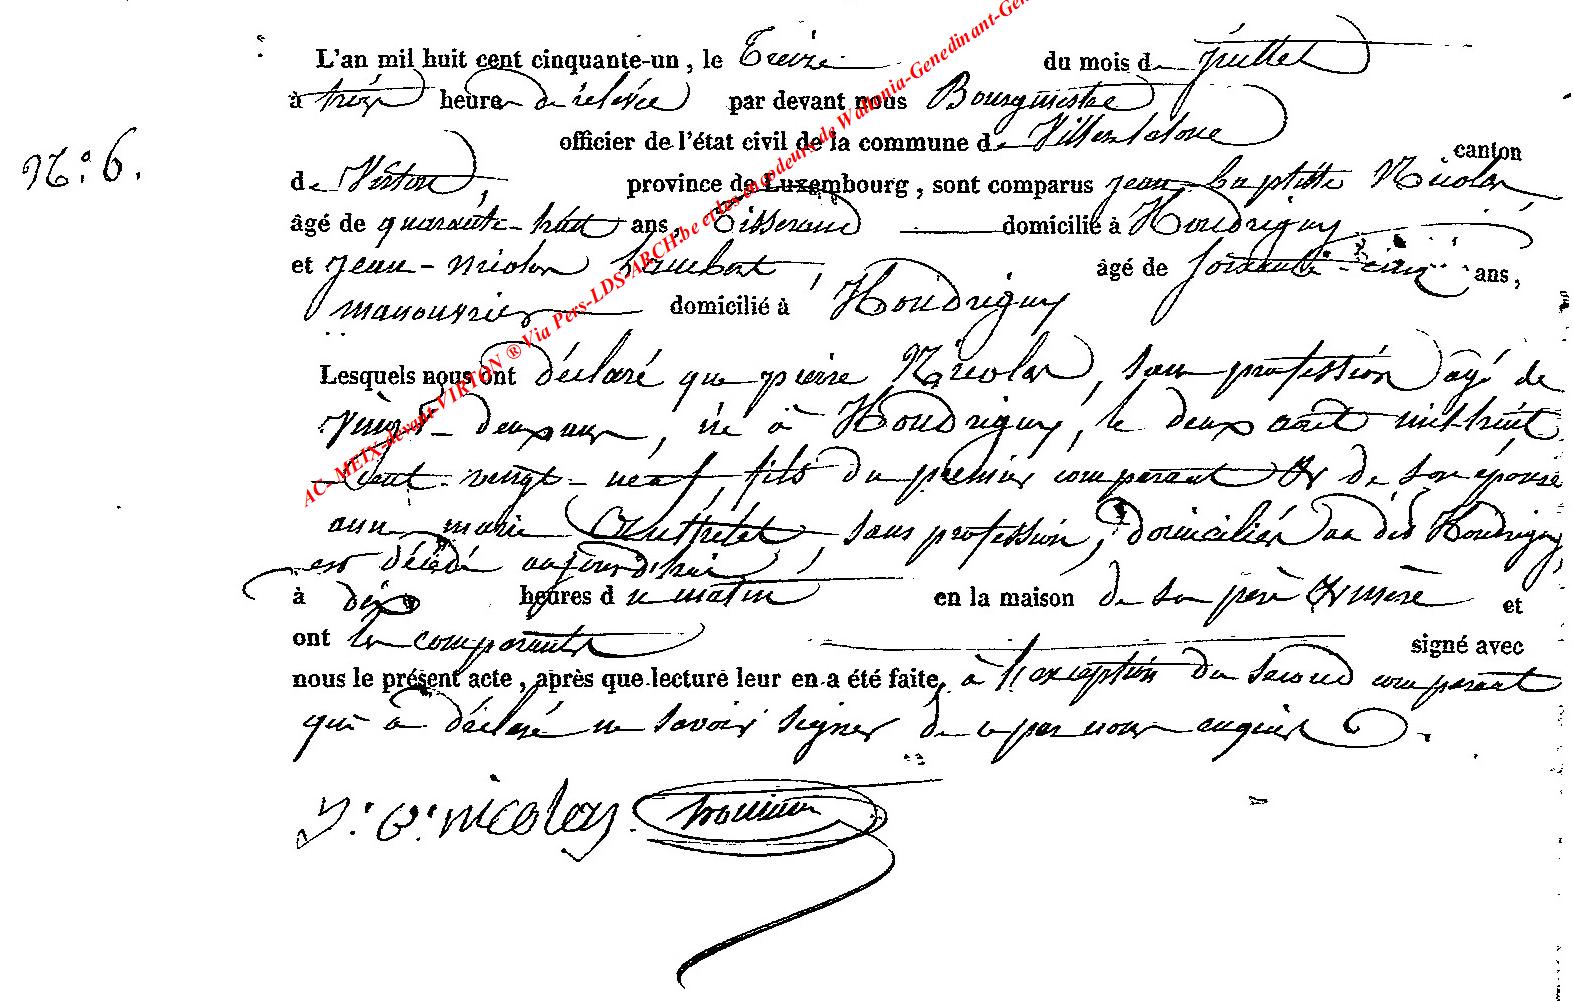 L'an mil huit cent cinquante-un, le Treize du mois de juillet
à trois heures de relevée par devant nous Bourgmestre
officier de l'état civil de la commune de Villers-la-loue
canton
N.o 6.
de Virton, province de Luxembourg, sont comparus jean-baptiste Nicolas
âgé de quarante-huit ans, Tisserand domicilié à Houdrigny
et jean-nicolas âgé de soixante-cinq ans,
manouvrier domicilié à Houdrigny
Lesquels nous ont déclaré que pierre Nicolas, sans profession âgé de
vingt-deux ans, né à Houdrigny, le deux août mil-huit
cent-vingt-neuf, fils du premier comparant & de son épouse
anne marie sans profession, domiciliés au dit Houdrigny,
est décédé aujourd'hui
à dix heures du matin en la maison de son père & mère et
ont les comparants signé avec
nous le présent acte, après que lecture leur en a été faite, à l'exception du second comparant
qui a déclaré ne savoir signer de ce par nous enquis.
J. B. nicolas
AC-MEIX-devant-VIRTON ® Via Pers-LDS-ARCH.be et les encodeurs de Wallonia-Genedinant-Gen